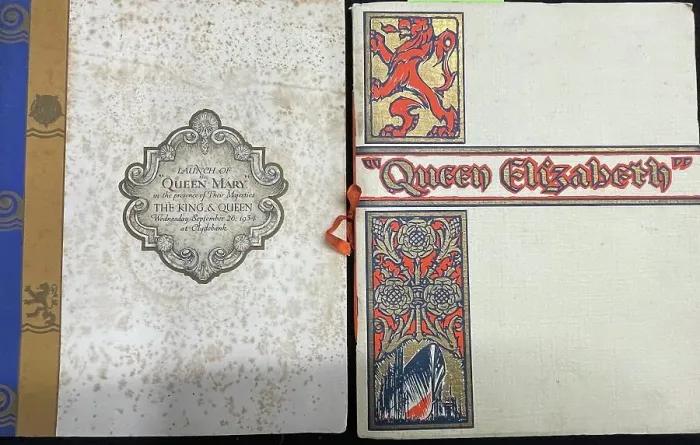 LAUNCH OF
"QUEEN MARY"
in the presence of Their Majesties
THE KING & QUEEN
Wednesday September 26; 1934
at Clydebank
"Queen Elizabeth"